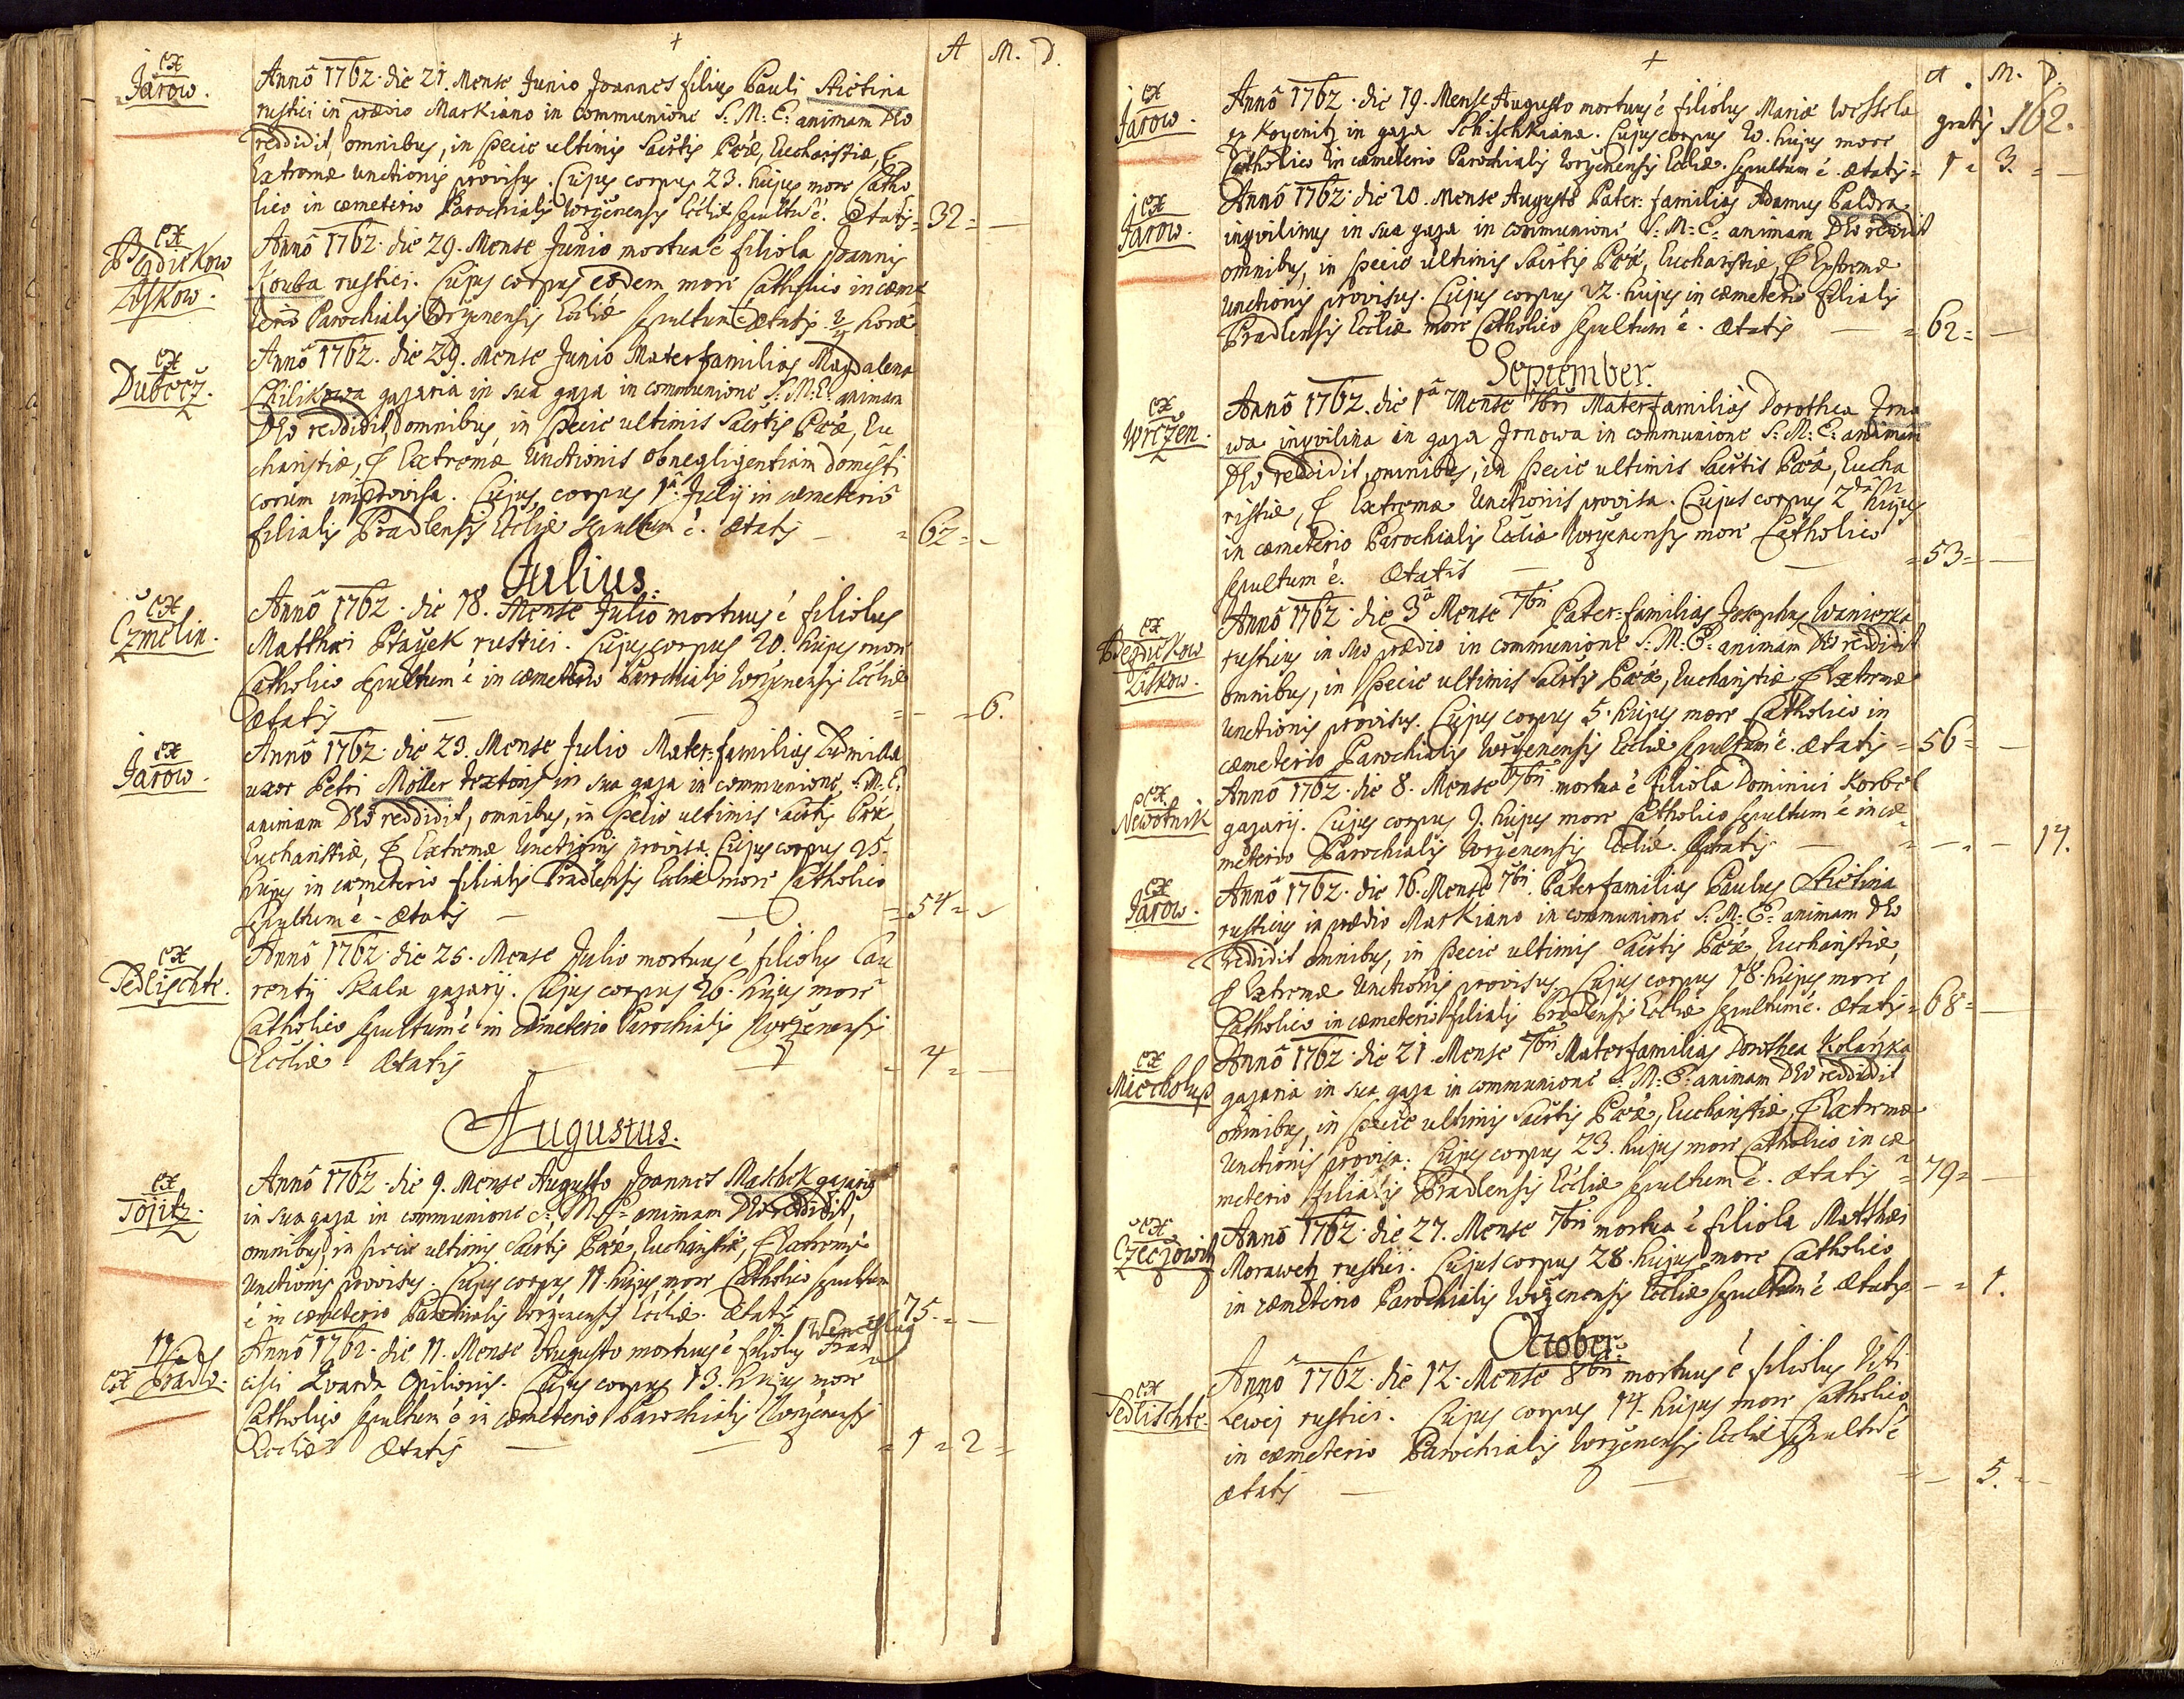 A M. D.
ex Jarow.
Anno 1762 die 21. Mense Junio Joannes filius Pauli Stictina
rustici in prædio Markiano in communione S: M: E: animam Deo
reddidit, omnibus, in specie ultimis Sacrtis Pœæ, Eucharistiæ, &
Extremæ unctionis provisus. Cujus corpus 23. hujus more Catho
lico in cæmeterio Parochialis Wrženensis Eccliæ sepultu ẽ. Ætatis = 32 = —
ex Liskow.
Anno 1762 die 29. Mense Junio mortua ẽ filiola Joannis
Kouba rustici. Cujus corpus eodem more Catholico in cæme
terio Parochialis Wrženensis Eccliæ sepultum ẽ Ætatis horæ
ex Dubecz.
Anno 1762. die 29. Mense Junio Materfamilias Magdalena
gazaria in sua gaza in communione S: M: E: animam
Deo reddidit, omnibus, in specie ultimis Sacrtis Pœæ, Eu
charistiæ, & Extremæ Unctionis ob negligentiam domesti
corum improvisa. Cujus corpus 1ª Julij in cæmeterio
filialis Pradlensis Eccliæ sepultum ẽ. Ætatis — = 62 = —
Julius.
ex Czmelin.
Anno 1762. die 18. Mense Julio mortuus ẽ filiolus
Matthæi Ptaček rustici. Cujus corpus 20. hujus more
Catholico sepultum ẽ in cæmeterio Parochialis Wrženensis Eccliæ
Ætatis — — = — = 6.
ex Jarow.
Anno 1762. die 23. Mense Julio Mater-familias Ludmilla
uxor Petri Möller textoris in sua gaza in communione S: M: E:
animam Deo reddidit, omnibus, in specie ultimis Sacrtis Pœæ,
Eucharistiæ, & Extremæ Unctionis provisa. Cujus corpus 25.
hujus in cæmeterio filialis Pradlensis Eccliæ more Catholico
sepultum ẽ - Ætatis — — = 54 =
ex Sedlischte.
Anno 1762. die 25. Mense Julio mortuus ẽ filiolus Lau
rentij Skala gazarij. Cujus corpus 26. hujus more
Catholico sepultum ẽ in cæmeterio Parochialis Wrženensis
Eccliæ - Ætatis — = 4 = —
Augustus.
ex Tojitz.
Anno 1762. die 9. Mense Augusto Joannes Maschek gazarius
in sua gaza in communione S: M: E: animam Deo reddidit,
omnibus, in specie ultimis Sacrtis Pœæ, Eucharistiæ, & Extremæ
Unctionis provisus. Cujus corpus 11. hujus more Catholico sepultum
ẽ in cæmeterio Parochialis Wrženensis Eccliæ. Ætatis 75. = —
Wenceslaus
ex Pradlo.
Anno 1762. die 11. Mense Augusto mortuus ẽ filiolus Fran
cisci Zwarda Opilionis. Cujus corpus 13. hujus more
Catholico sepultum ẽ in cæmeterio Parochialis Wrženensis
Eccliæ Ætatis — — = 1 = 2 =
A. M. D.
162.
ex Jarow.
Anno 1762. die 19. Mense Augusto mortuus ẽ filiolus Mariæ Wessela
ex Koyenitz in gaza Schischkiana. Cujus corpus 20. hujus more gratis
Catholico in cæmeterio Parochialis Wrženensis Eccliæ. sepultum ẽ. Ætatis = 1 = 3. = —
ex Jarow.
Anno 1762. die 20. Mense Augusto Pater-familias Adamus Baldra
inqvilinus in sua gaza in communione S: M: E: animam Deo reddidit
omnibus, in specie ultimis Sacrtis Pœæ, Eucharistiæ, & Extremæ
Unctionis provisus. Cujus corpus 22. hujus in cæmeterio filialis
Pradlensis Eccliæ more Catholico sepultum ẽ. Ætatis — = 62 = —
September.
ex Wrčzen.
Anno 1762. die 1ª Mense 7bri Materfamilias Dorothea Jrno
wa inqvilina in gaza Jrnowa in communione S: M: E: animam
Deo reddidit, omnibus, in specie ultimis Sacrtis Pœæ, Eucha
ristiæ, & Extremæ Unctionis provisa. Cujus corpus 2da hujus
in cæmeterio Parochialis Eccliæ Wrženensis more Catholico
sepultum ẽ. Ætatis — — = 53 = —
ex Liskow.
Anno 1762. die 3ª Mense 7bri Pater-familias Josephus Winierka
rusticus in suo prædio in communione S: M: E: animam Deo reddidit
omnibus, in specie ultimis Sacrtis Pœæ, Eucharistiæ, & Extremæ
Unctionis provisus. Cujus corpus 5. hujus more Catholico in
cæmeterio Parochialis Wrženensis Eccliæ sepultum ẽ. Ætatis = 56 = —
ex Newotnik
Anno 1762. die 8. Mense 7bri mortua ẽ filiola Dominici Korbel
gazarij. Cujus corpus 9. hujus more Catholico sepultum ẽ in cæ
meterio Parochialis Wrženensis Eccliæ. Ætatis — = — = — 14.
ex Jarow.
Anno 1762. die 16. Mense 7bri. Paterfamilias Paulus Stictina
rusticus in prædio Markiano in communione S: M: E: animam Deo
reddidit omnibus, in specie ultimis Sacrtis Pœæ, Eucharistiæ,
& Extremæ Unctionis provisus. Cujus corpus 18. hujus more
Catholico in cæmeterio filialis Pradlensis Eccliæ sepultum ẽ. Ætatis = 68 = —
ex Miecholup
Anno 1762. die 21. Mense 7bri Materfamilias Dorothea Kolářska
gazaria in sua gaza in communione S: M: E: animam Deo reddidit
omnibus, in specie ultimis Sacrtis Pœæ, Eucharistiæ, & Extremæ
Unctionis provisa. Cujus corpus 23. hujus more Catholico in cæ
meterio filialis Pradlensis Eccliæ sepultum ẽ. Ætatis = 79 = —
ex Czeczowitz
Anno 1762. die 27. Mense 7bri mortua ẽ filiola Matthæi
Morawetz rustici. Cujus corpus 28. hujus more Catholico
in cæmeterio Parochialis Wrženensis Eccliæ sepultum ẽ Ætatis — = 1.
October.
ex Sedlischte.
Anno 1762. die 12. Mense 8bri mortuus ẽ filiolus Viti
Lewej rustici. Cujus corpus 14. hujus more Catholico
in cæmeterio Parochialis Wrženensis Eccliæ sepultu ẽ
Ætatis — — = — 5. = —